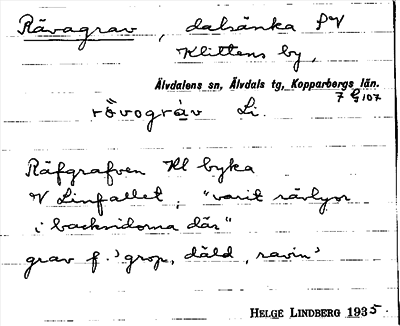 Rävagrav, dalsänka SV
Klittens by,
Älvdalens sn, Älvdals tg, Kopparbergs län.
7 G 107
rövogràv Li.
Räfgrafven Kl byka
V Linfallet; "varit rävlyor
i backsidorna där"
grav f. 'grop, däld, ravin'
HELGE LINDBERG 1935.